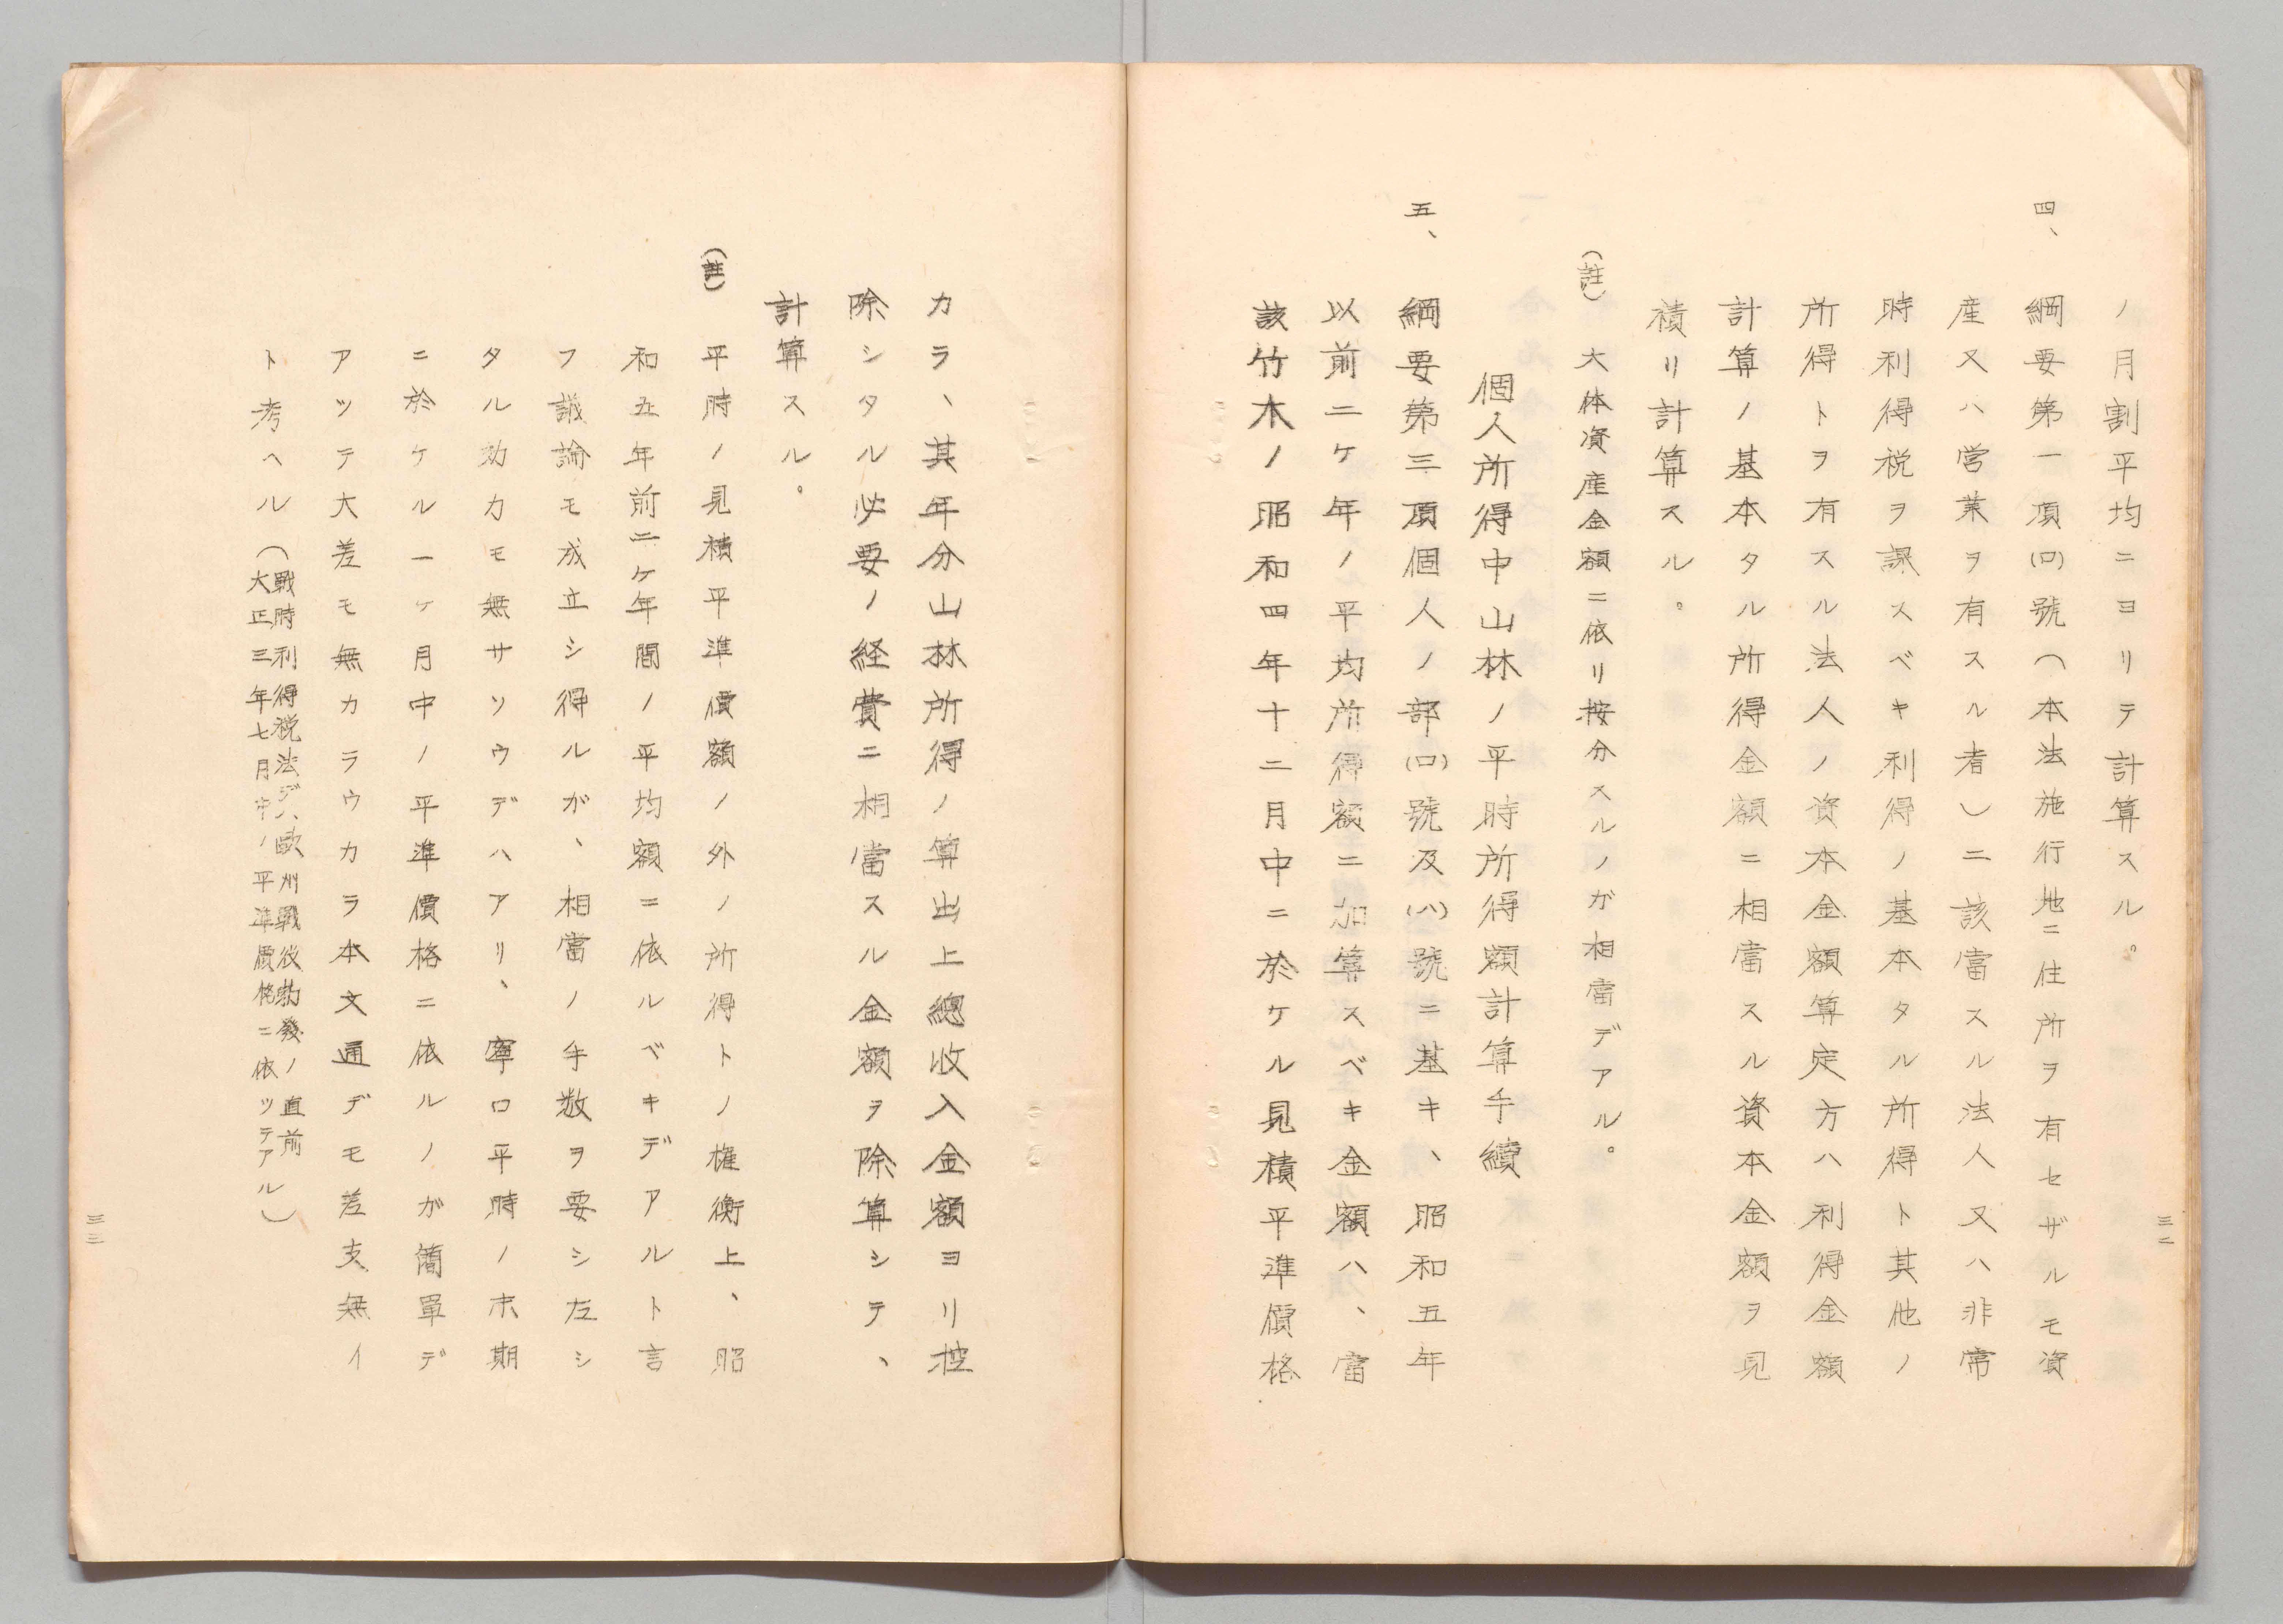 ノ月割平均ニヨリテ計算スル。
四、綱要第一項(ロ)號(本法施行地ニ住所ヲ有セザルモ資
産又ハ営業ヲ有スル者)ニ該當スル法人又ハ非常
時利得税ヲ課スベキ利得ノ基本タル所得ト其他ノ
所得トヲ有スル法人ノ資本金額算定方ハ利得金額
計算ノ基本タル所得金額ニ相當スル資本金額ヲ見
積リ計算スル。
(註)大体資産金額ニ依リ按分スルノガ相當デアル。
個人所得中山林ノ平時所得額計算手續
五、綱要第三項個人ノ部(ロ)號及(ハ)號ニ基キ、昭和五年
以前二ケ年ノ平均所得額ニ加算スベキ金額ハ、當
該竹木ノ昭和四年十二月中ニ於ケル見積平準價格
三二
カラ、其年分山林所得ノ算出上總收入金額ヨリ控
除シタル必要ノ経費ニ相當スル金額ヲ除算シテ、
計算スル。
(註)平時ノ見積平準價額ノ外ノ所得トノ権衡上、昭
和五年前二ケ年間ノ平均額ニ依ルベキデアルト言
フ議論モ成立シ得ルガ、相當ノ手数ヲ要シ左シ
タル効力モ無サソウデハアリ、寧ロ平時ノ末期
ニ於ケル一ケ月中ノ平準價格ニ依ルノガ簡單デ
アツテ大差モ無カラウカラ本文通デモ差支無イ
ト考ヘル(戰時利得税法デハ歐州戰役勃發ノ直前
大正三年七月中ノ平準價格ニ依ツテアル)
三三